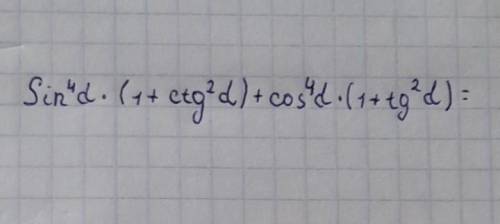 Sin⁴d · (1 + ctg²d) + cos⁴d · (1 + tg²d) =